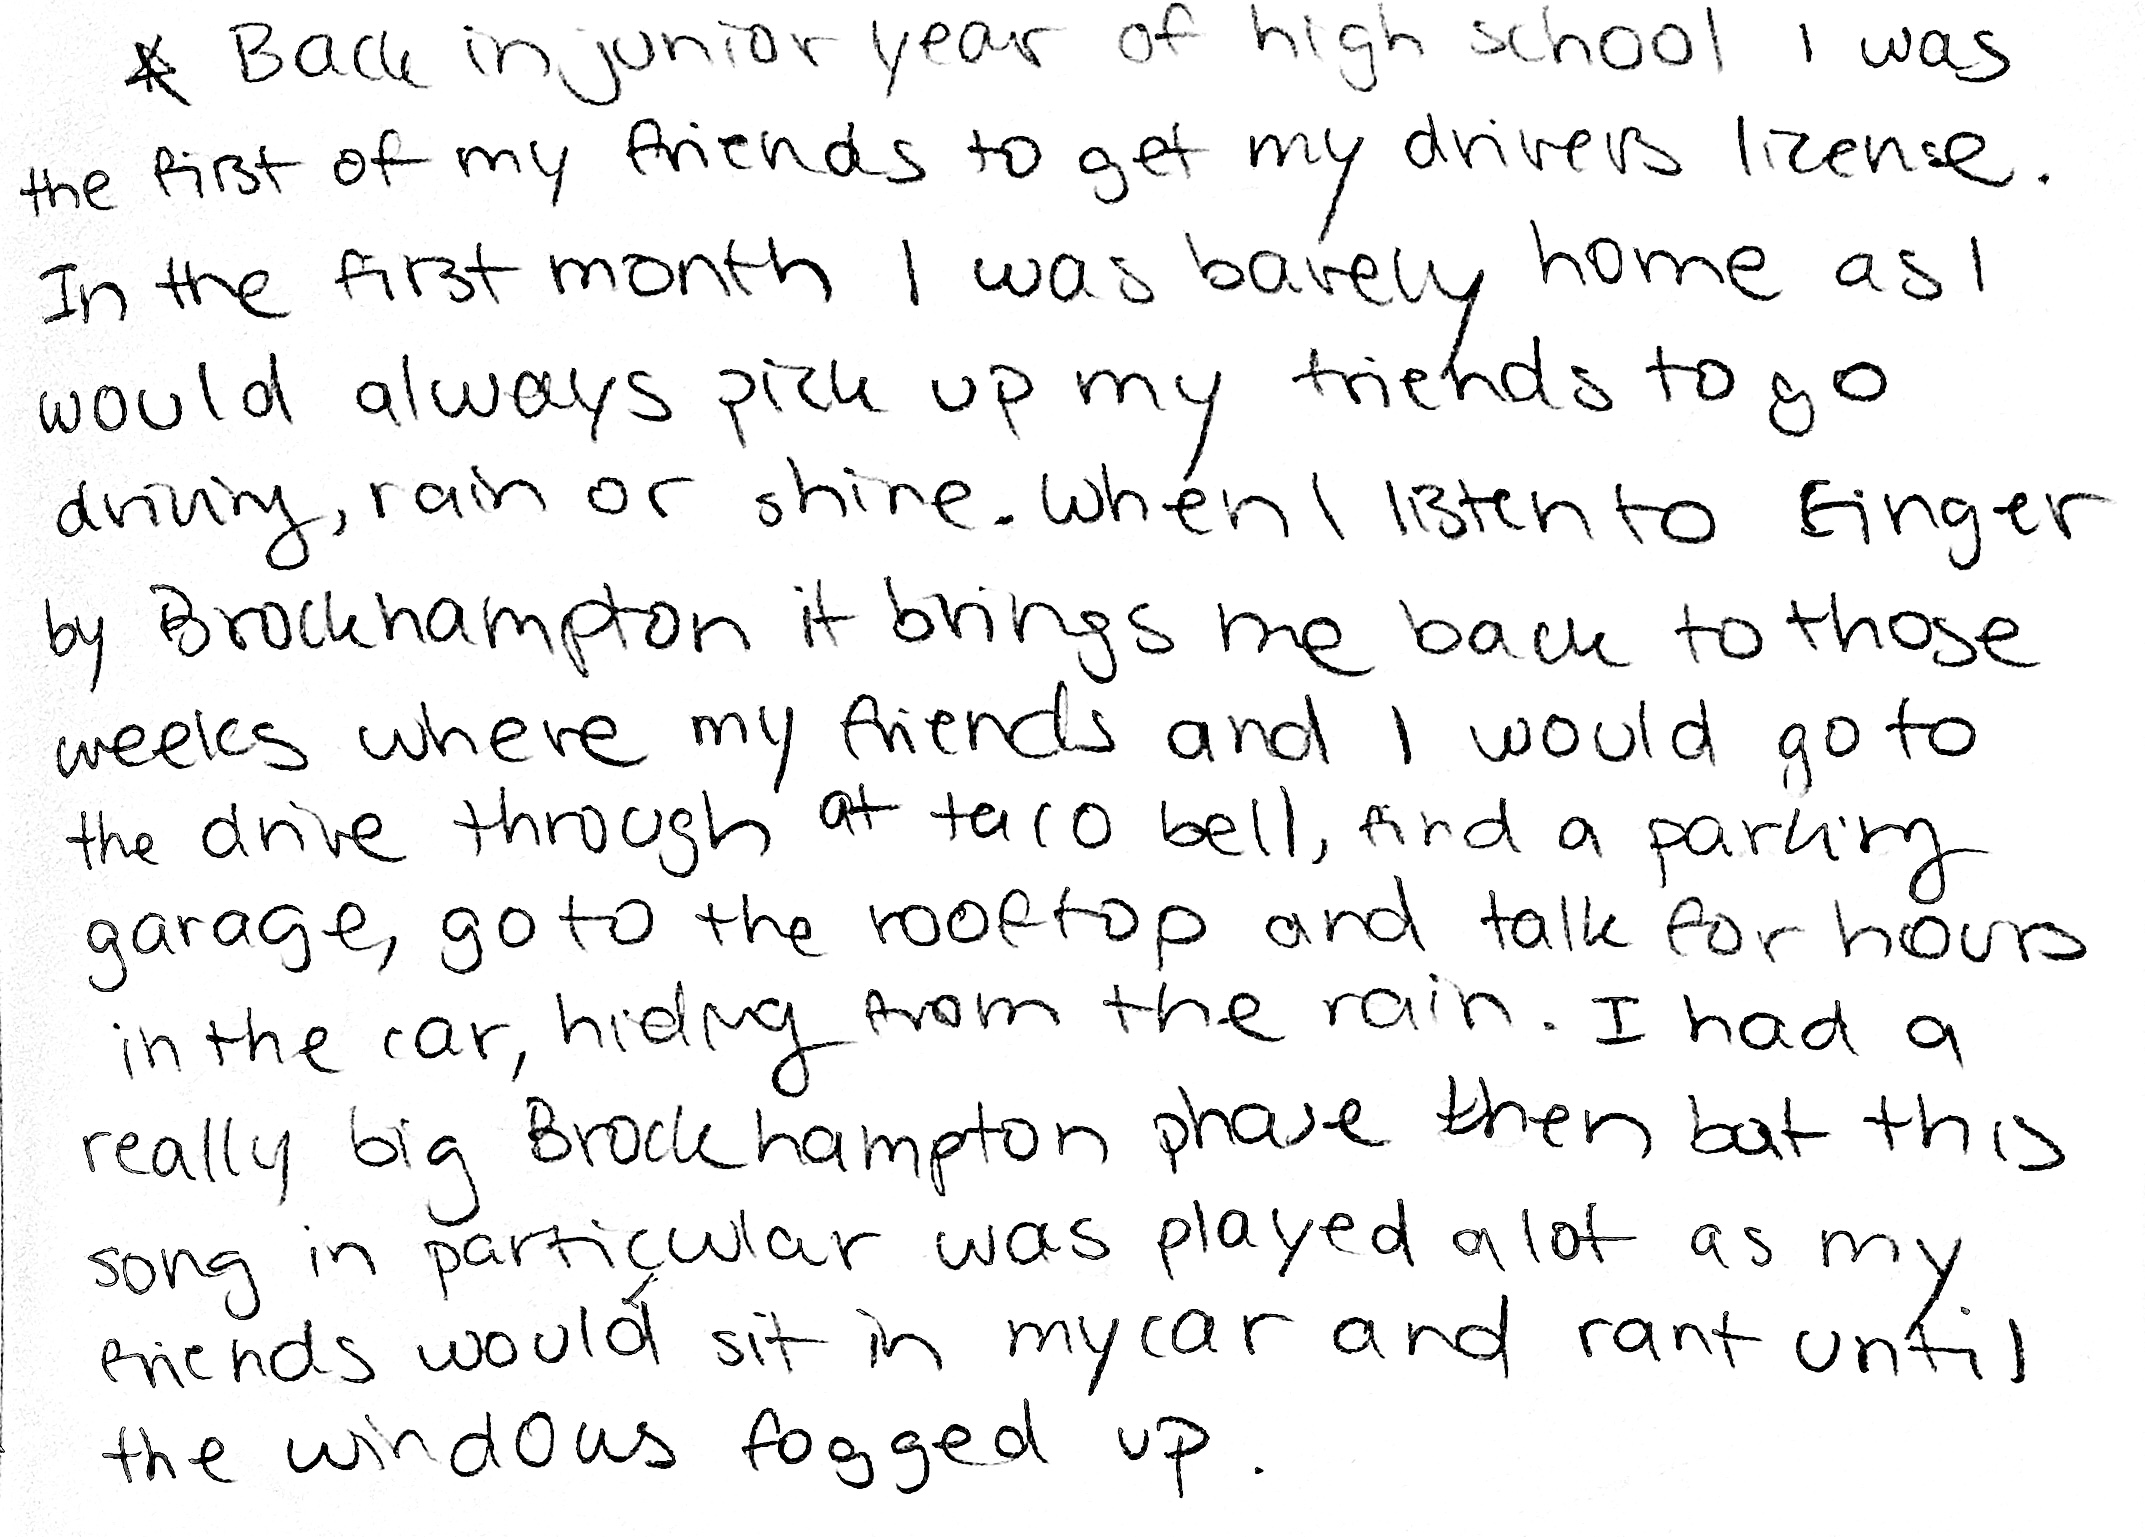 * Back in junior year of high school I was
the first of my friends to get my drivers license.
In the first month I was barely home as I
would always pick up my friends to go
driving, rain or shine. When I listen to Ginger
by Brockhampton it brings me back to those
weeks where my friends and I would go to
the drive through at taco bell, find a parking
garage, go to the rooftop and talk for hours
in the car, hiding from the rain. I had a
really big Brockhampton phase then but this
song in particular was played alot as my
friends would sit in my car and rant until
the windows fogged up.